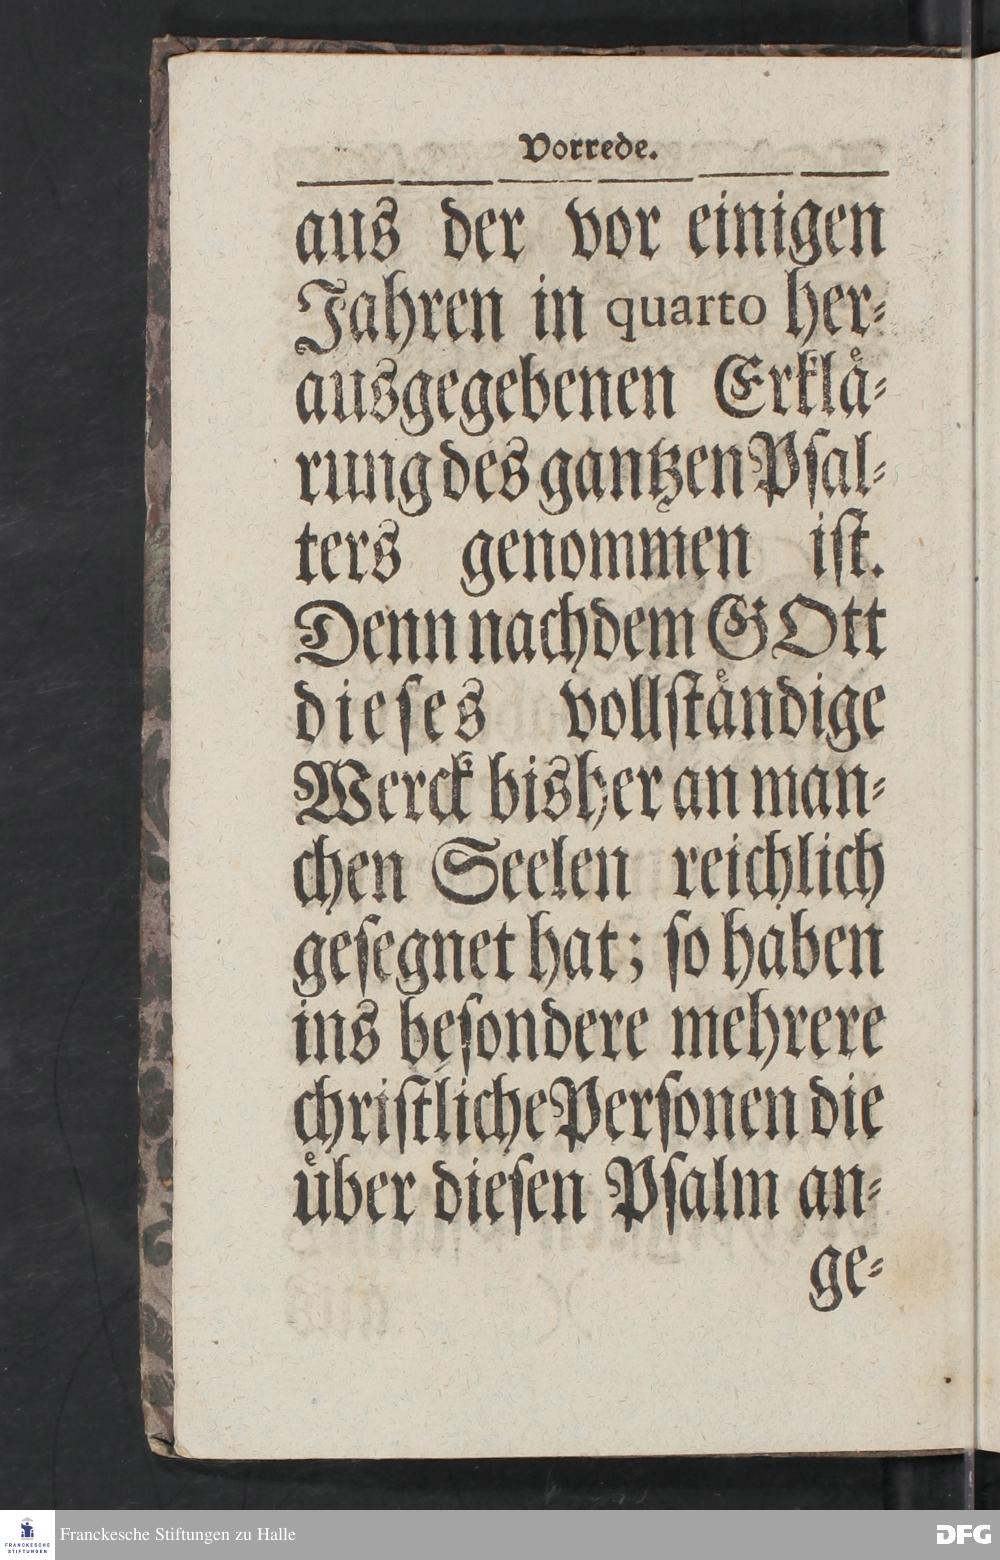 Vorrede.
aus der vor einigen
Jahren in quarto her⸗
ausgegebenen Erklaͤ⸗
rung des gantzen Pſal⸗
ters genommen iſt.
Denn nachdem GOtt
dieſes vollſtaͤndige
Werck bisher an man⸗
chen Seelen reichlich
geſegnet hat; ſo haben
ins beſondere mehrere
chriſtliche Perſonen die
uͤber dieſen Pſalm an⸗
ge⸗
FRANCKESCHE
STIFTUNGEN
Franckesche Stiftungen zu Halle
DFG